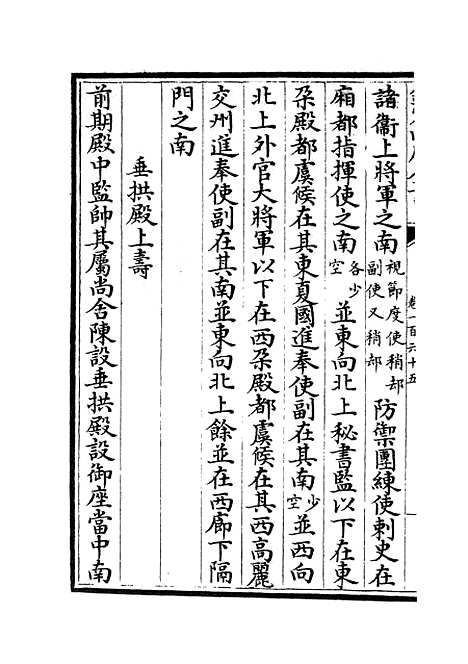 卷一百六十五
諸衞上將軍之南視節度使稍却副使又稍却防禦團練使刺史在
廂都指揮使之南各少空並東向北上秘書監以下在東
朶殿都虞候在其東夏國進奉使副在其南少空並西向
北上外官大將軍以下在西朶殿都虞候在其西高麗
交州進奉使副在其南並東向北上餘並在西廊下隔
門之南
垂拱殿上壽
前期殿中監帥其屬尚舍陳設垂拱殿設御座當中南